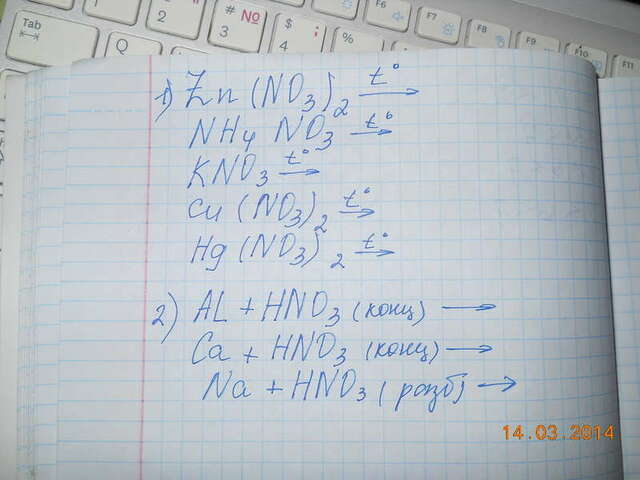 Tab
Q
2
# №
3
$ ;
4
%
F6
F7
F8
F9
F10
F11
1) Zn (NO3)2 t° →
NH4 NO3 t° →
KNO3 t° →
Cu (NO3)2 t° →
Hg (NO3)2 t° →
2) AL + HNO3 (конц) →
Ca + HNO3 (конц) →
Na + HNO3 (разб) →
14.03.2014